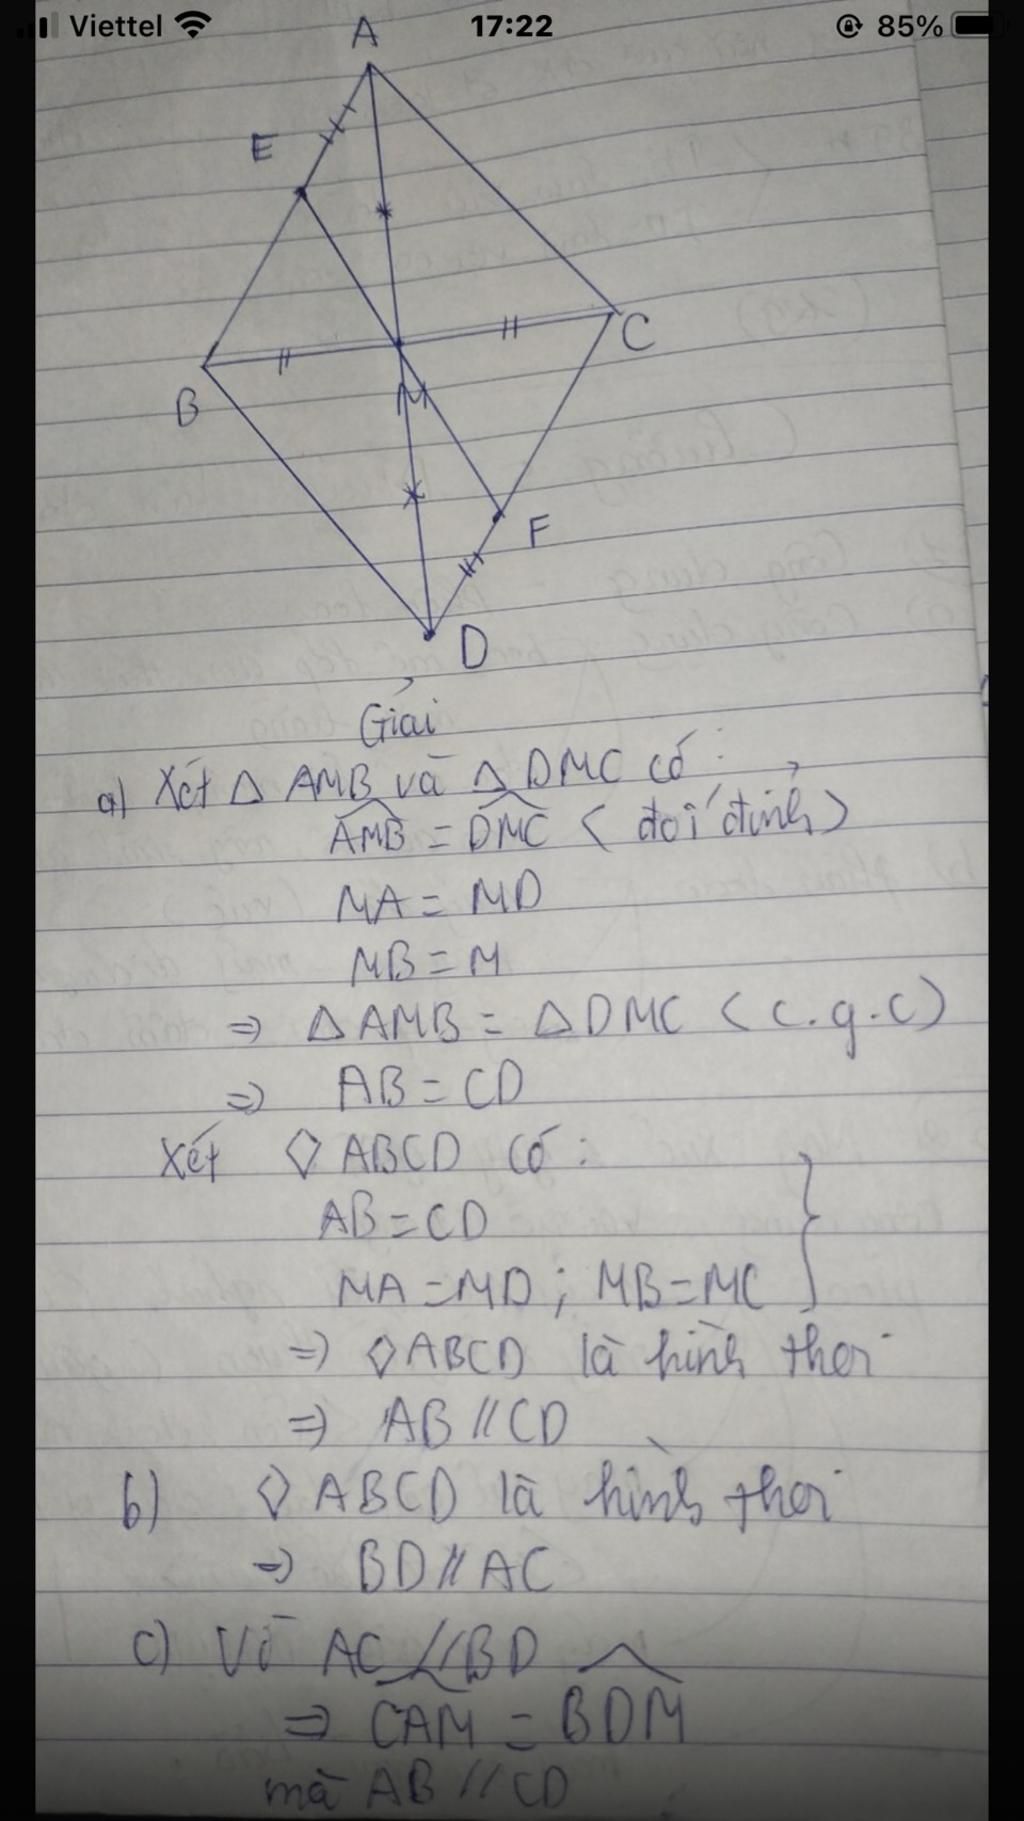 Viettel 17:22 85%
A
E
C
B
M
F
D
Giải
a) Xét △ AMB và △ DMC có:
AMB = DMC < đối đỉnh >
MA = MD
MB = M
=> △ AMB = △ DMC < c.g.c)
=> AB = CD
Xét ◊ ABCD có:
AB = CD
MA = MD ; MB = MC }
=> ◊ ABCD là hình thoi
=> AB // CD
b) ◊ ABCD là hình thoi
=> BD // AC
c) Vì AC // BD
=> CAM = BDM
mà AB // CD